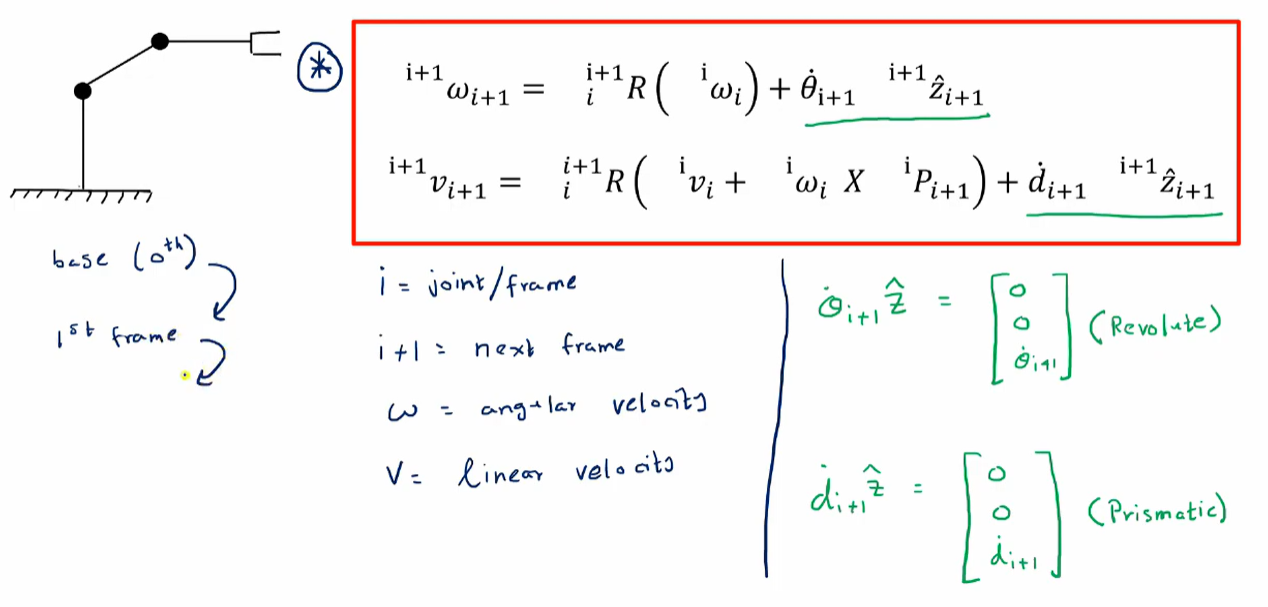 *
i+1ω_{i+1} = i+1_iR ( iω_i ) + θ̇_{i+1} i+1ẑ_{i+1}
i+1v_{i+1} = i+1_iR ( iv_i + iω_i X iP_{i+1} ) + ḋ_{i+1} i+1ẑ_{i+1}
base (0th)
1st frame
i = joint/frame
i+1 = next frame
ω = angular velocity
V = linear velocity
θ̇_{i+1} ẑ = [0 0 θ̇_{i+1}] (Revolute)
ḋ_{i+1} ẑ = [0 0 ḋ_{i+1}] (Prismatic)